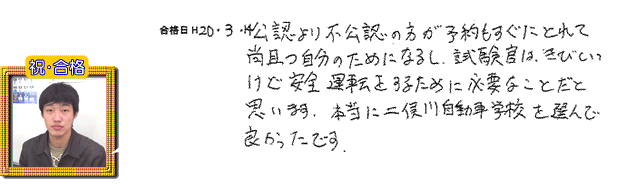 合格日 H20・3・14 公認より不公認の方が予約もすぐにとれて
尚且つ自分のためになるし、試験官は、きびしい
けど安全運転をするために必要なことだと
思います。本当に二俣川自動車学校を選んで
良かったです。
祝・合格